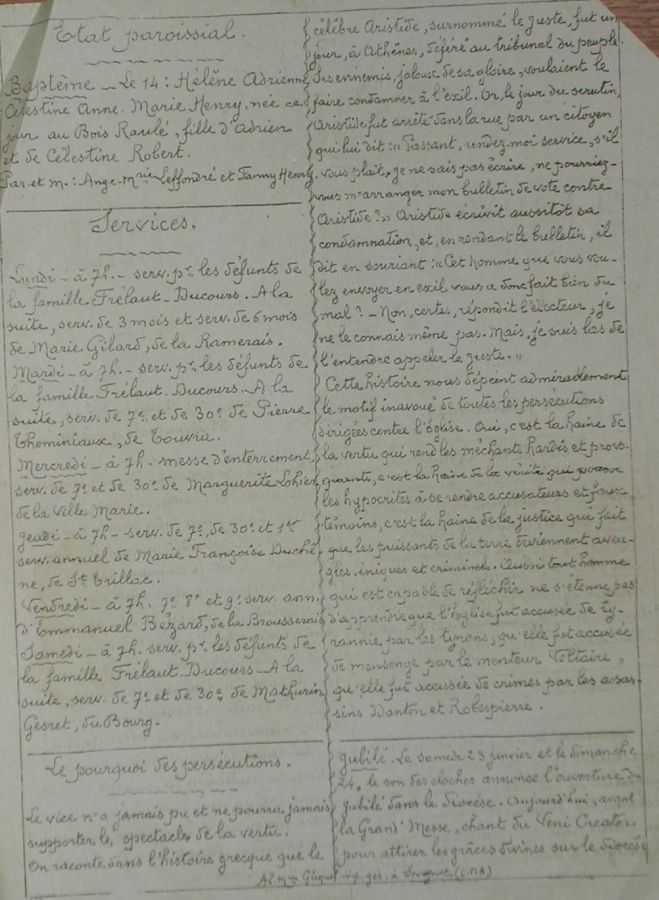 Etat paroissial.
Baptême - Le 14 : Hélène Adrienne
Célestine Anne-Marie Henry, née ce
jour au Bois Raulé, fille d'Adrien
et de Célestine Robert.
Par. et m. : Ange-Mie Leffondré et Fanny Henry.
Services.
Lundi - à 7h. - serv. pr. les défunts de
la famille Frélaut-Ducours. A la
suite, serv. de 3 mois et serv. de 6 mois
de Marie Gilard, de la Ramerais.
Mardi - à 7h. - serv. pr. les défunts de
la famille Frélaut-Ducours. A la
suite, serv. de 7e. et de 30e. de Pierre
Thominiaux, de Couvru.
Mercredi - à 7h - messe d'enterrement,
serv. de 7e. et de 30e. de Marguerite Lohier
de la Ville Marie.
Jeudi - à 7h - serv. de 7e., de 30e. et 1er
serv. annuel de Marie Françoise Duché
ne, de St Trillac.
Vendredi - à 7h. 7e 8e et 9e. serv. ann.
d'Emmanuel Bézard, de la Brousserais
Samedi - à 7h. serv. pr. les défunts de
la famille Frélaut-Ducours - A la
suite, serv. de 7e. et de 30e. de Mathurin
Gesret, du Bourg.
Le pourquoi des persécutions.
Le vice n'a jamais pu et ne pourra jamais
supporter le spectacle de la vertu.
On raconte dans l'histoire grecque que le
célèbre Aristide, surnommé le juste, fut un
jour, à Athènes, déféré au tribunal du peuple.
Ses ennemis, jaloux de sa gloire, voulaient le
faire condamner à l'exil. Or, le jour du scrutin,
Aristide fut arrêté dans la rue par un citoyen
qui lui dit : "Passant, rendez-moi service, s'il
vous plait, je ne sais pas écrire, ne pourriez-
vous m'arranger mon bulletin de vote contre
Aristide ?" Aristide écrivit aussitôt sa
condamnation, et, en rendant le bulletin, il
dit en souriant : "Cet homme que vous vou-
lez envoyer en exil, vous a donc fait bien du
mal ? - Non, certes, répondit l'électeur, je
ne le connais même pas. Mais, je suis las de
l'entendre appeler le juste."
Cette histoire nous dépeint admirablement
le motif inavoué de toutes les persécutions
dirigées contre l'Eglise. Oui, c'est la haine de
la vertu qui rend les méchants hardis et provo-
quants, c'est la haine de la vérité qui pousse
les hypocrites à se rendre accusateurs et faux
témoins, c'est la haine de la justice qui fait
que les puissants de la terre deviennent aveu-
gles, iniques et criminels. Aussi tout homme
qui est capable de réfléchir ne s'étonne pas
d'apprendre que l'Eglise fut accusée de ty-
rannie par les tyrans, qu'elle fut accusée
de mensonge par le menteur Voltaire,
qu'elle fut accusée de crimes par les assas-
sins Danton et Robespierre.
Jubilé - Le samedi 23 janvier et le dimanche
24, le son des cloches annonce l'ouverture du
jubilé dans le diocèse. Aujourd'hui, avant
la Grand'Messe, chant du Veni Creator
pour attirer les grâces divines sur le diocèse
gér. à